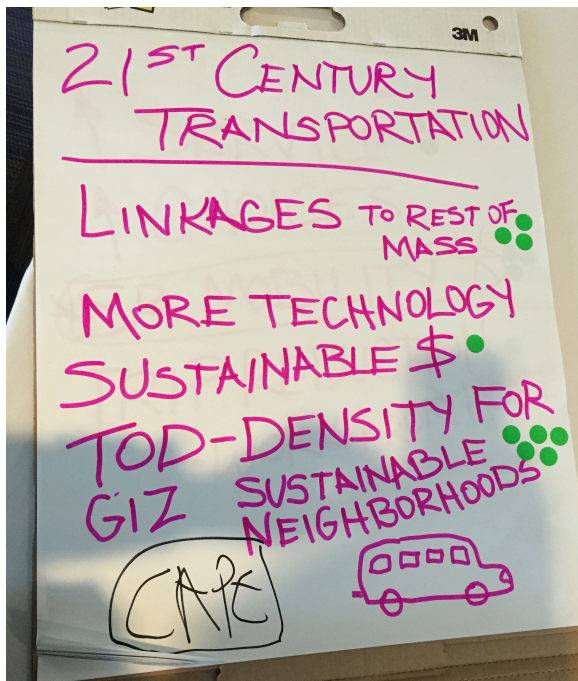 3M
21ST CENTURY
TRANSPORTATION
LINKAGES TO REST OF
MASS
MORE TECHNOLOGY
SUSTAINABLE $
TOD-DENSITY FOR
GIZ SUSTAINABLE
NEIGHBORHOODS
CAPE